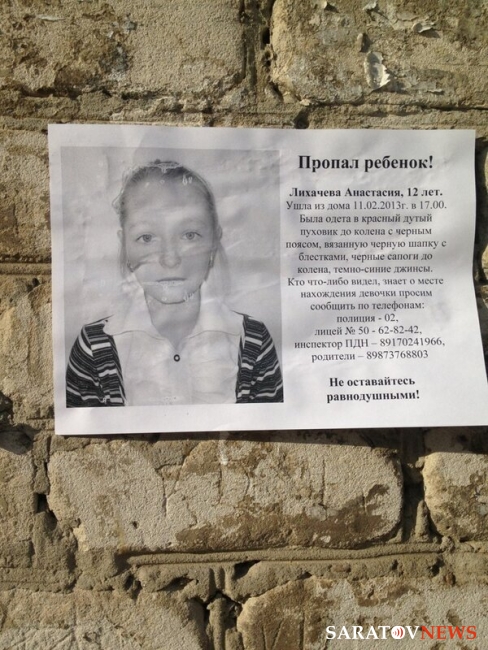 Пропал ребенок!
Лихачева Анастасия, 12 лет.
Ушла из дома 11.02.2013г. в 17.00.
Была одета в красный дутый
пуховик до колена с черным
поясом, вязанную черную шапку с
блестками, черные сапоги до
колена, темно-синие джинсы.
Кто что-либо видел, знает о месте
нахождения девочки просим
сообщить по телефонам:
полиция - 02,
лицей № 50 - 62-82-42,
инспектор ПДН – 89170241966,
родители – 89873768803
Не оставайтесь
равнодушными!
SARATOVNEWS